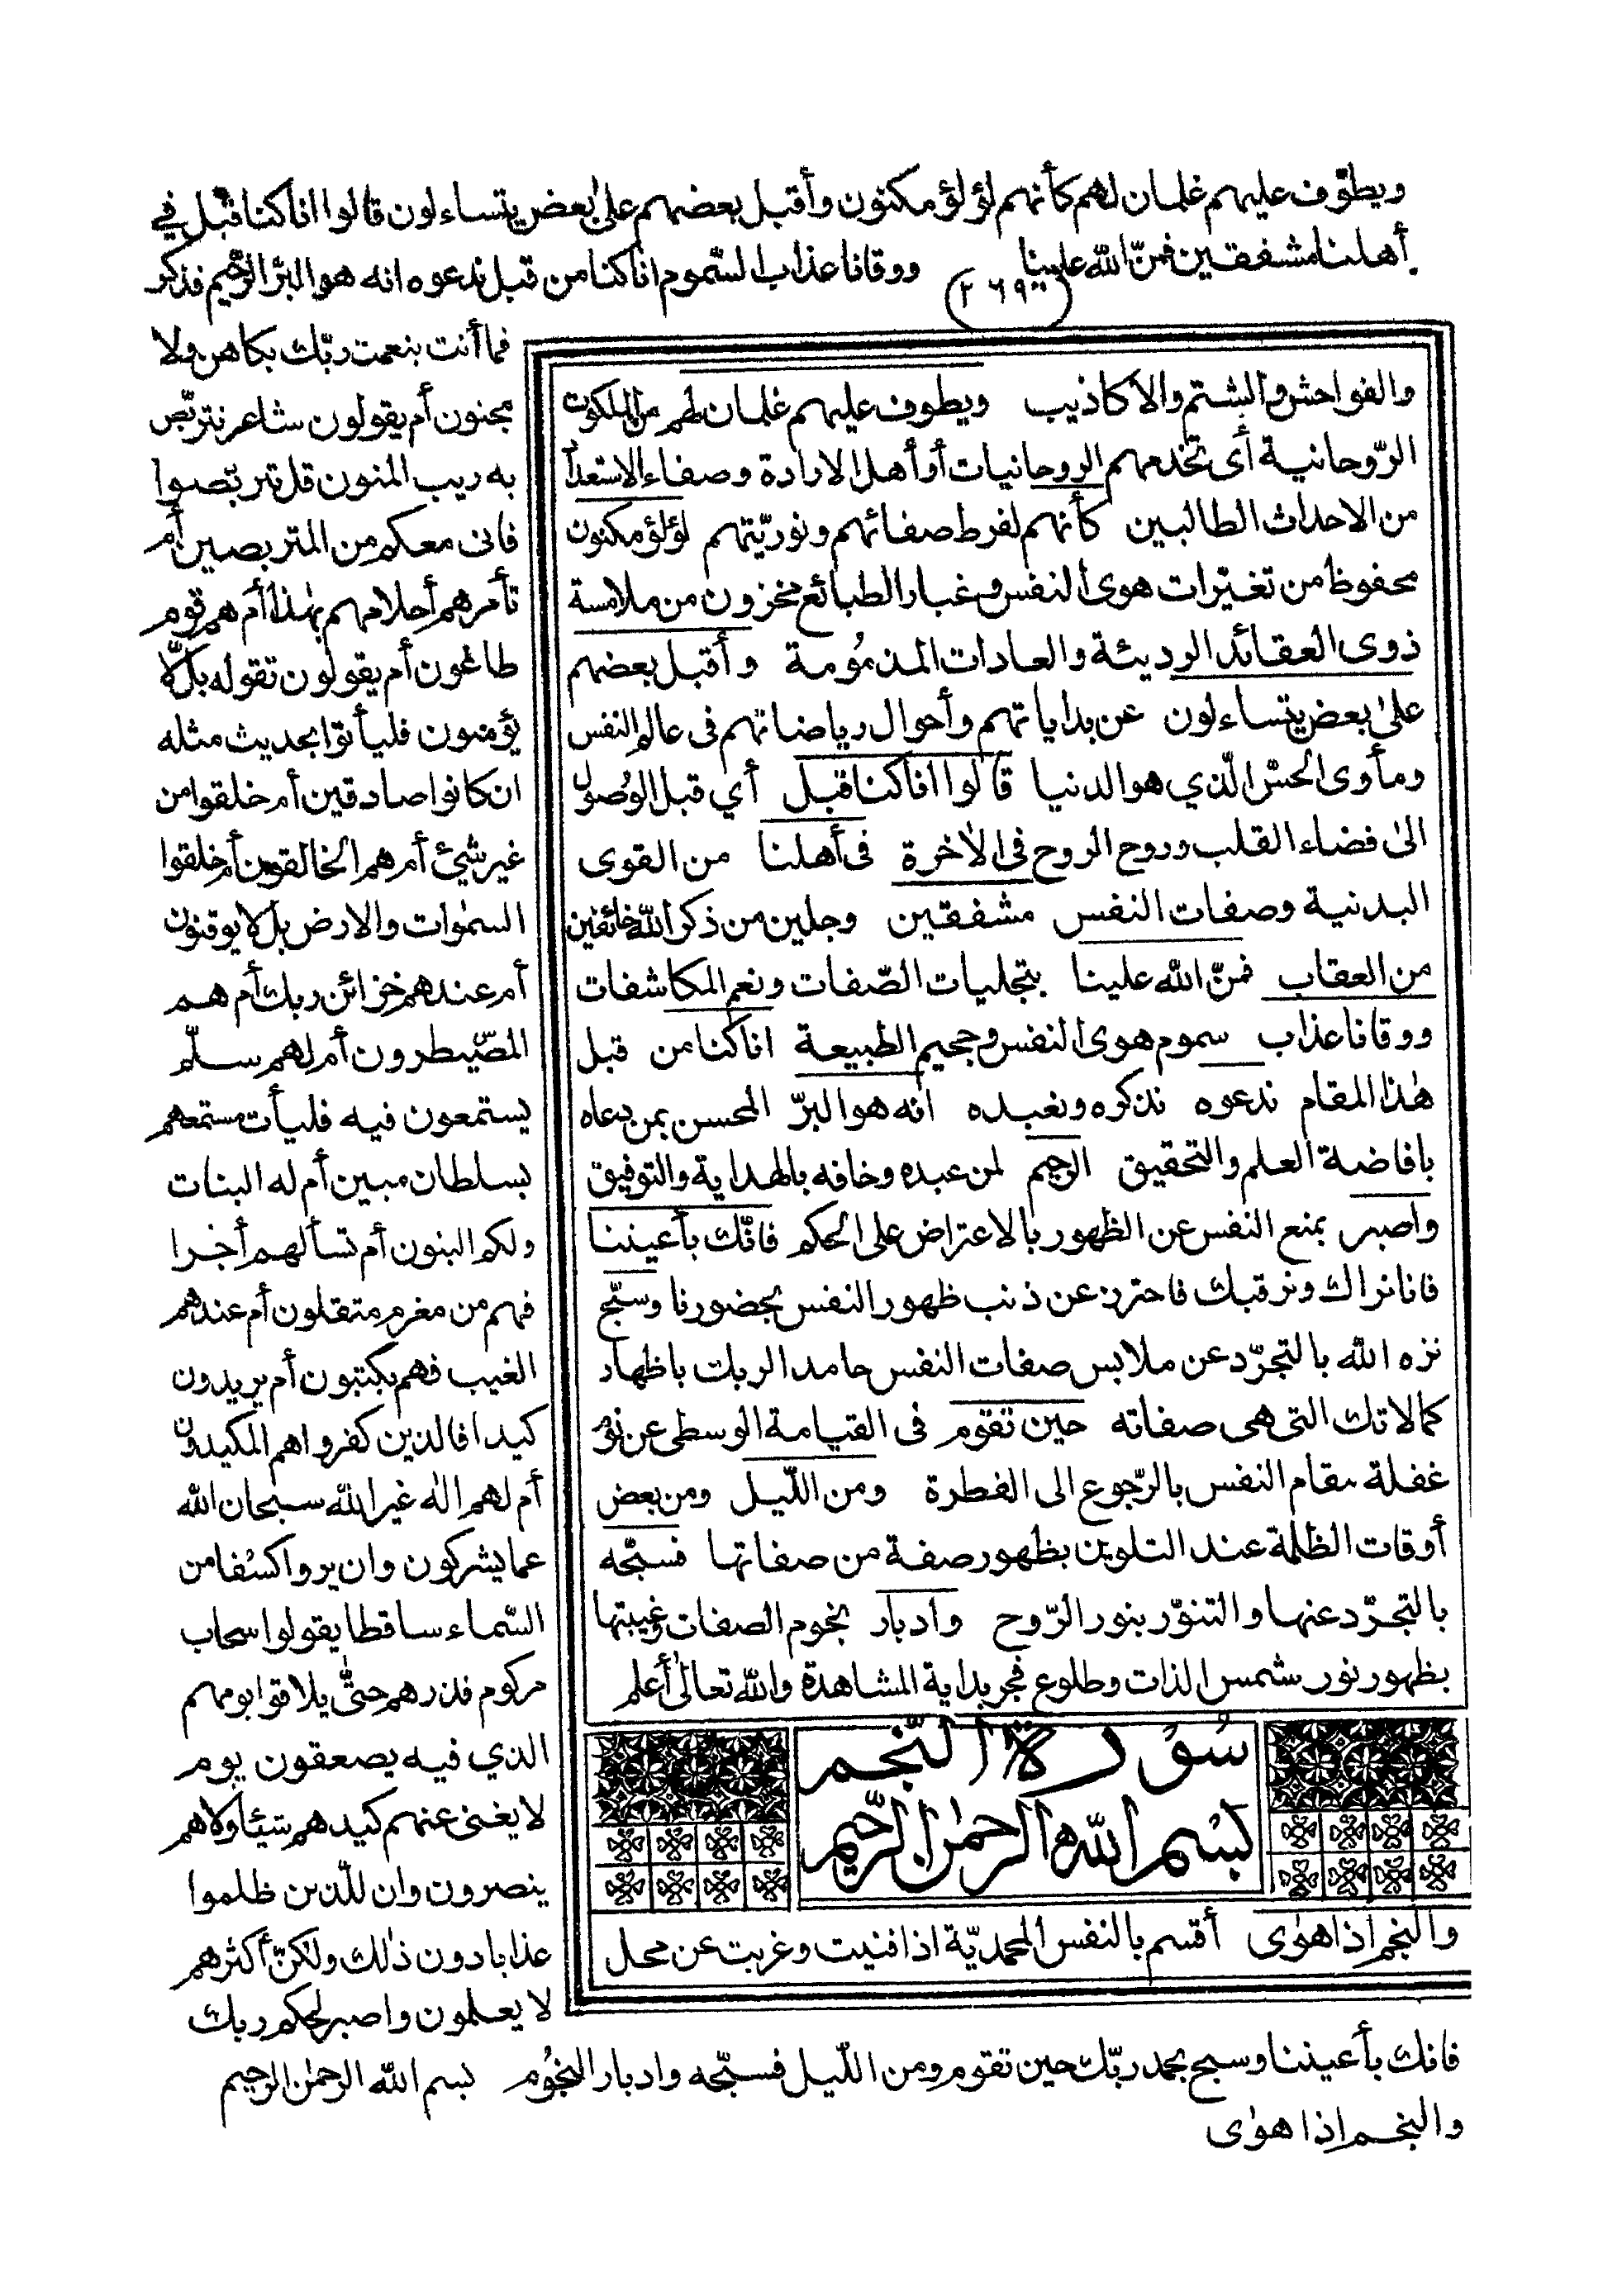 ويطوّف عليهم غلمان لهم كأنهم لؤلؤ مكنون وأقبل بعضهم على بعض يتساءلون قالوا انا كنا قبل في
أهلنا مشفقين فمنّ الله علينا ووقانا عذاب السّموم انا كنا من قبل ندعوه انه هو البرّ الرّحيم فذكر
٢٦٩
فما أنت بنعمت ربّك بكاهن ولا
مجنون أم يقولون شاعر نتربّص
به ريب المنون قل تربّصوا
فانى معكم من المتربصين أم
تأمرهم أحلامهم بهٰذا أم هم قوم
طاغون أم يقولون تقوّله بل لّا
يؤمنون فليأتوا بحديث مثله
ان كانوا صادقين أم خلقوا من
غير شيئ أم هم الخالقون أم خلقوا
السمٰوات والارض بل لا يوقنون
أم عندهم خزائن ربك أم هم
المصّيطرون أم لهم سلّم
يستمعون فيه فليأت مستمعهم
بسلطان مبين أم له البنات
ولكم البنون أم تسألهم أجرا
فهم من مغرم مثقلون أم عندهم
الغيب فهم يكتبون أم يريدون
كيدا فالذين كفروا هم المكيدون
أم لهم الٰه غير الله سبحان الله
عما يشركون وان يروا كسفا من
السّماء ساقطا يقولوا سحاب
مركوم فذرهم حتّٰى يلاقوا يومهم
الذي فيه يصعقون يوم
لا يغنى عنهم كيدهم شيئا ولا هم
ينصرون وان للّذين ظلموا
عذابا دون ذٰلك ولٰكنّ أكثرهم
لا يعلمون واصبر لحكم ربك
والفواحش والشتم والاكاذيب ويطوف عليهم غلمان لهم من الملكوت
الرّوحانية أى تخدمهم الروحانيات أو أهل الارادة وصفاء الاستعداد
من الاحداث الطالبين كأنهم لفرط صفائهم ونوريّتهم لؤلؤ مكنون
محفوظ من تغيّرات هوى النفس وغبار الطبائع مخزون من ملامسة
ذوى العقائد الرديئة والعادات المذمُومة وأقبل بعضهم
على بعض يتساءلون عن بداياتهم وأحوال رياضاتهم فى عالم النفس
ومأوى الحسّ الّذي هو الدنيا قالوا انا كنا قبل أي قبل الوُصول
الىٰ فضاء القلب وروح الروح فى الاٰخرة فى أهلنا من القوى
البدنية وصفات النفس مشفقين وجلين من ذكر الله خائفين
من العقاب فمنّ الله علينا بتجليات الصّفات ونعم المكاشفات
ووقانا عذاب سموم هوى النفس وجحيم الطبيعة انا كنا من قبل
هٰذا المقام ندعوه نذكره ونعبده انه هو البرّ المحسن بمن دعاه
بافاضة العلم والتحقيق الرحيم لمن عبده وخافه بالهداية والتوفيق
واصبر بمنع النفس عن الظهور بالاعتراض على الحكم فانّك بأعيننا
فانا نراك ونرقبك فاحترز عن ذنب ظهور النفس بحضورنا وسبّح
نزه الله بالتجرّد عن ملابس صفات النفس حامدا لربك باظهار
كمالاتك التى هى صفاته حين تقوم فى القيامة الوسطى عن نوم
غفلة مقام النفس بالرّجوع الى الفطرة ومن اللّيل ومن بعض
أوقات الظلمة عند التلوين بظهور صفة من صفاتها فسبّحه
بالتجرّد عنها والتنوّر بنور الرّوح وادبار نجوم الصفات وغيبتها
بظهور نور شمس الذات وطلوع فجر بداية المشاهدة والله تعالىٰ أعلم
سُورة النّجم
بسْم الله الرحمٰن الرّحيم
والنجم اذا هوٰى أقسم بالنفس المحمديّة اذا فنيت وغربت عن محل
فانك بأعيننا وسبح بحمد ربّك حين تقوم ومن اللّيل فسبّحه وادبار النجُوم بسم الله الرحمٰن الرحيم
والنجم اذا هوٰى